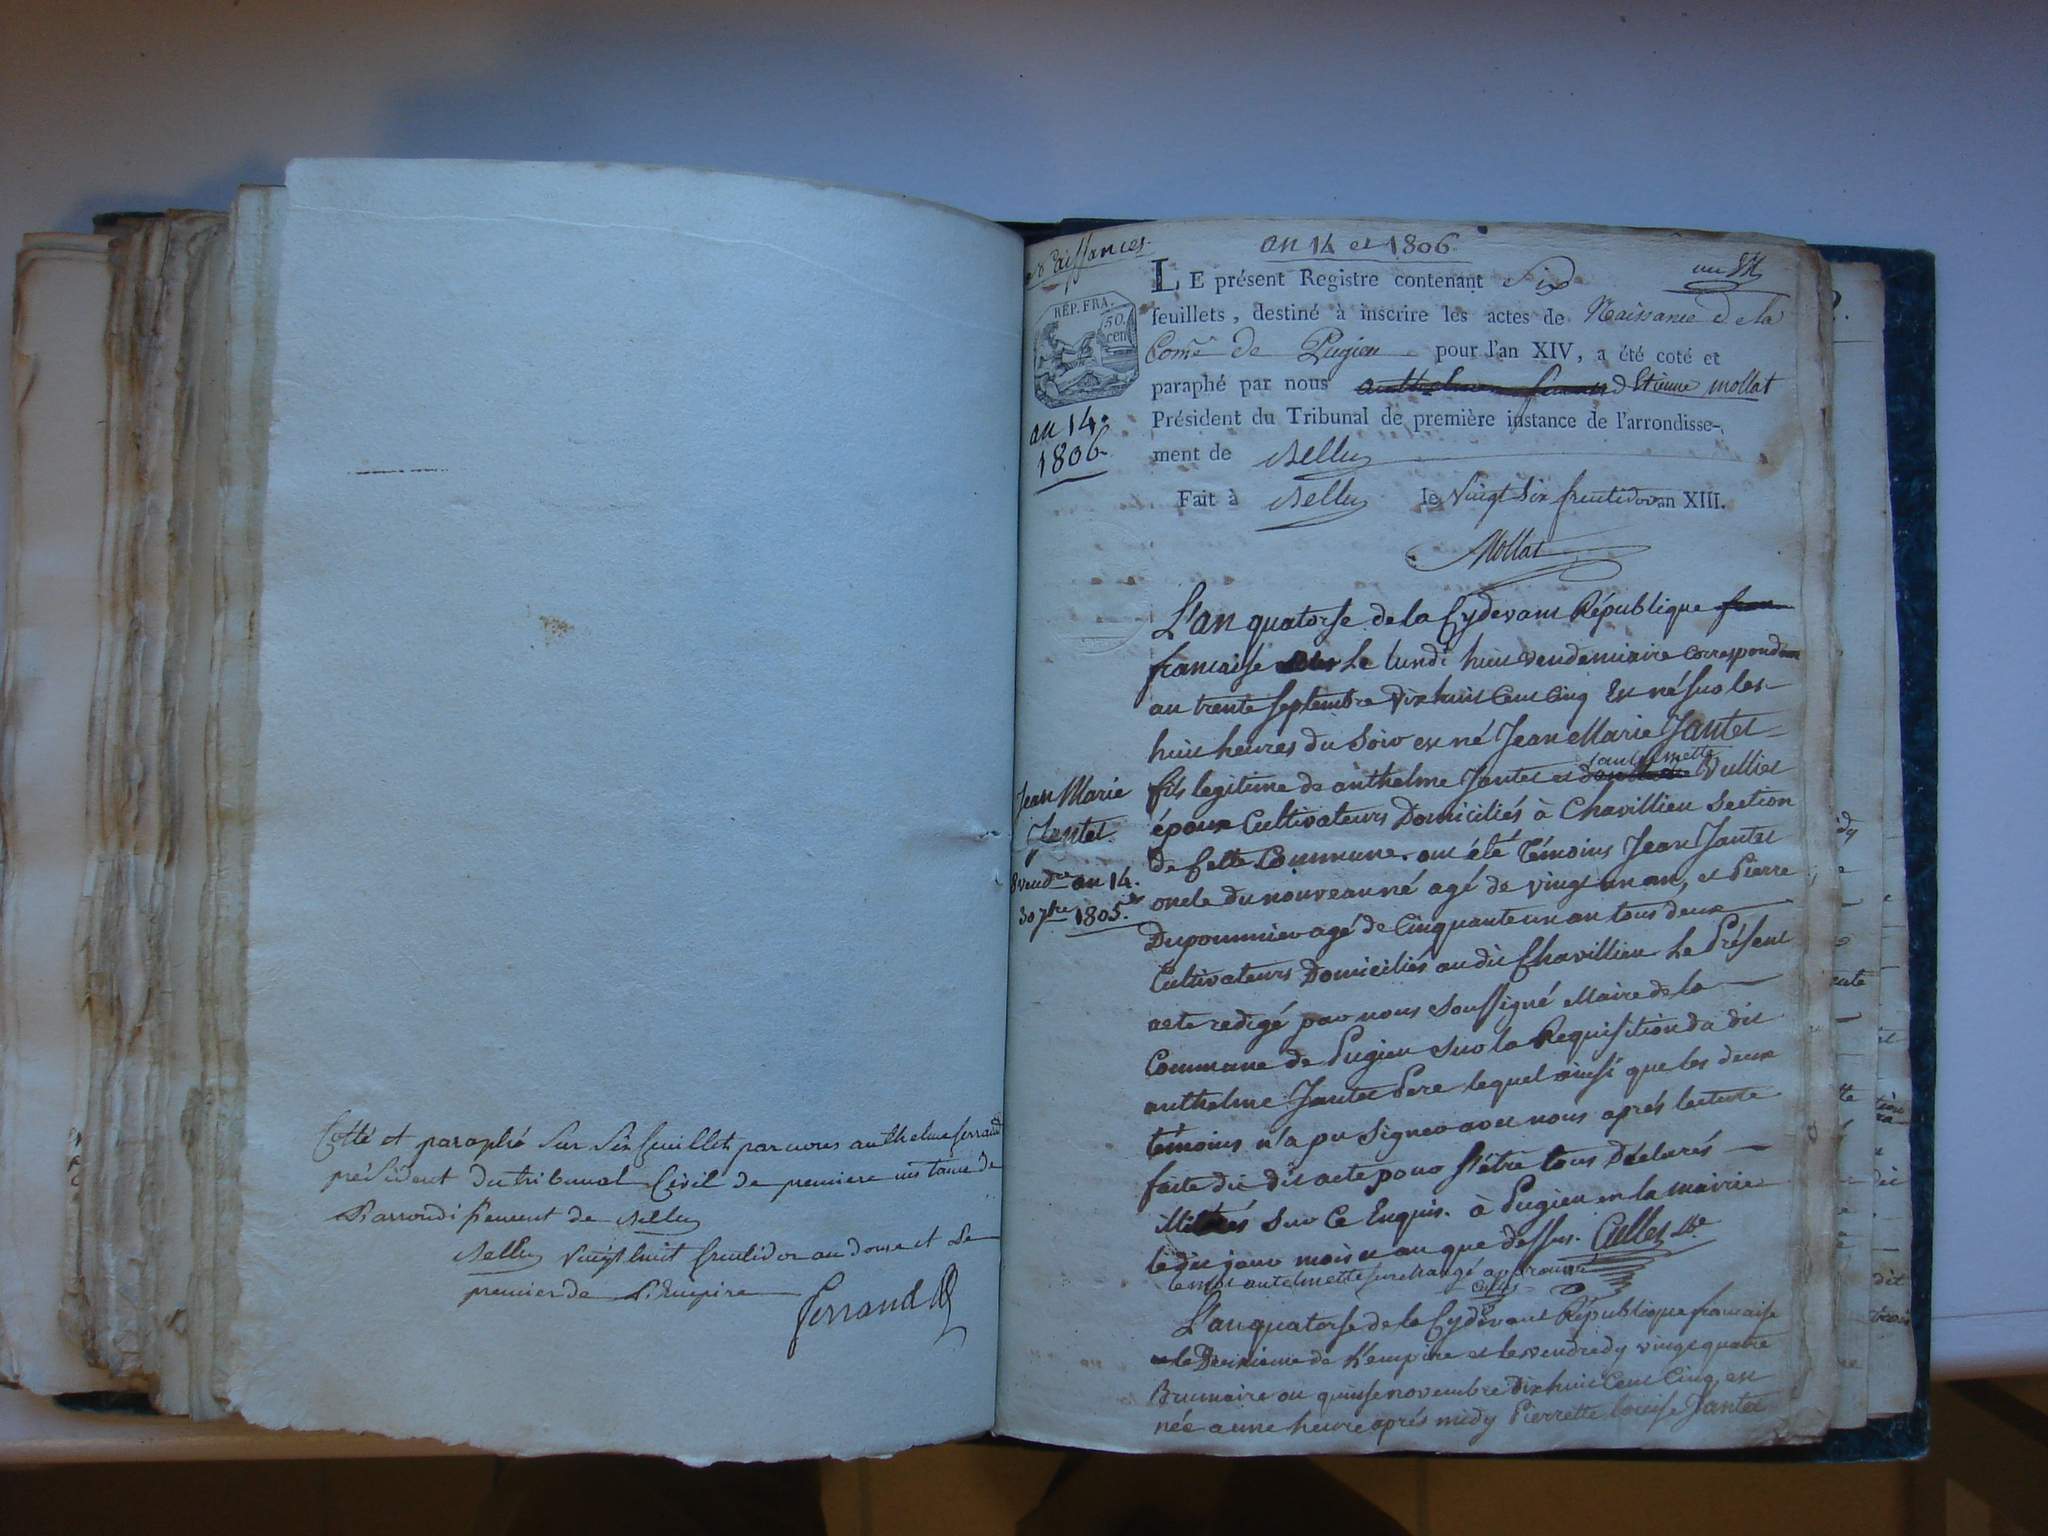 Cotté et paraphé sur six feuillets par nous anthelme ferrand
président du tribunal Civil de premiere instance de
L'arrondissement de Belley
Belley vingt huit fructidor an douse et Le
premier de L'Empire
ferrand
Naissances
an 14 et 1806
REP. FRA.
50 cen
an 14.
1806
LE présent Registre contenant Six
feuillets, destiné à inscrire les actes de Naissance de la
Com.e de Pugieu pour l'an XIV, a été coté et
paraphé par nous Etienne mollat
Président du Tribunal de première instance de l'arrondisse-
ment de Belley
Fait à Belley le Vingt Six fructidor an XIII.
Mollat
L'an quatorse de la Cydevant République
francaise Le lundi huit vendemiaire correspondant
au trente septembre Dix huit Cent Cinq Est né sur les
huit heures du Soir est né Jean Marie Jantet
fils legitime de anthelme Jantet et antelmette Vulliet
époux Cultivateurs Domiciliés à Chavillieu Section
de Cette Commune. ont été Témoins Jean Jantet
oncle du nouveau né agé de vingt un an, et Pierre
Dupommier agé de Cinquante un an tous deux
Cultivateurs Domiciliés au dit Chavillieu Le Présent
acte redigé par nous Soussigné Maire de la
Commune de Pugieu sur la Requisition du dit
anthelme Jantet Pere lequel ainsi que les deux
témoins n'a pu signer avec nous aprés lecture
faite du dit acte pour s'être tous Déclarés
illitrés Sur Ce Enquis. à Pugieu en la mairie
le dit jour mois et an que dessus. Cullet M.e
le mot antelmette surchargé approuvé
Cullet
Jean Marie
Jantet.
8 vend.re an 14.
30 7bre 1805.
L'an quatorse de la Cydevant République francaise
le Deuxieme de L'empire et le vendredy vingt quatre
Brumaire ou quinse novembre dix huit Cent Cinq, est
née a une heure aprés midy Pierrette Louise Jantet